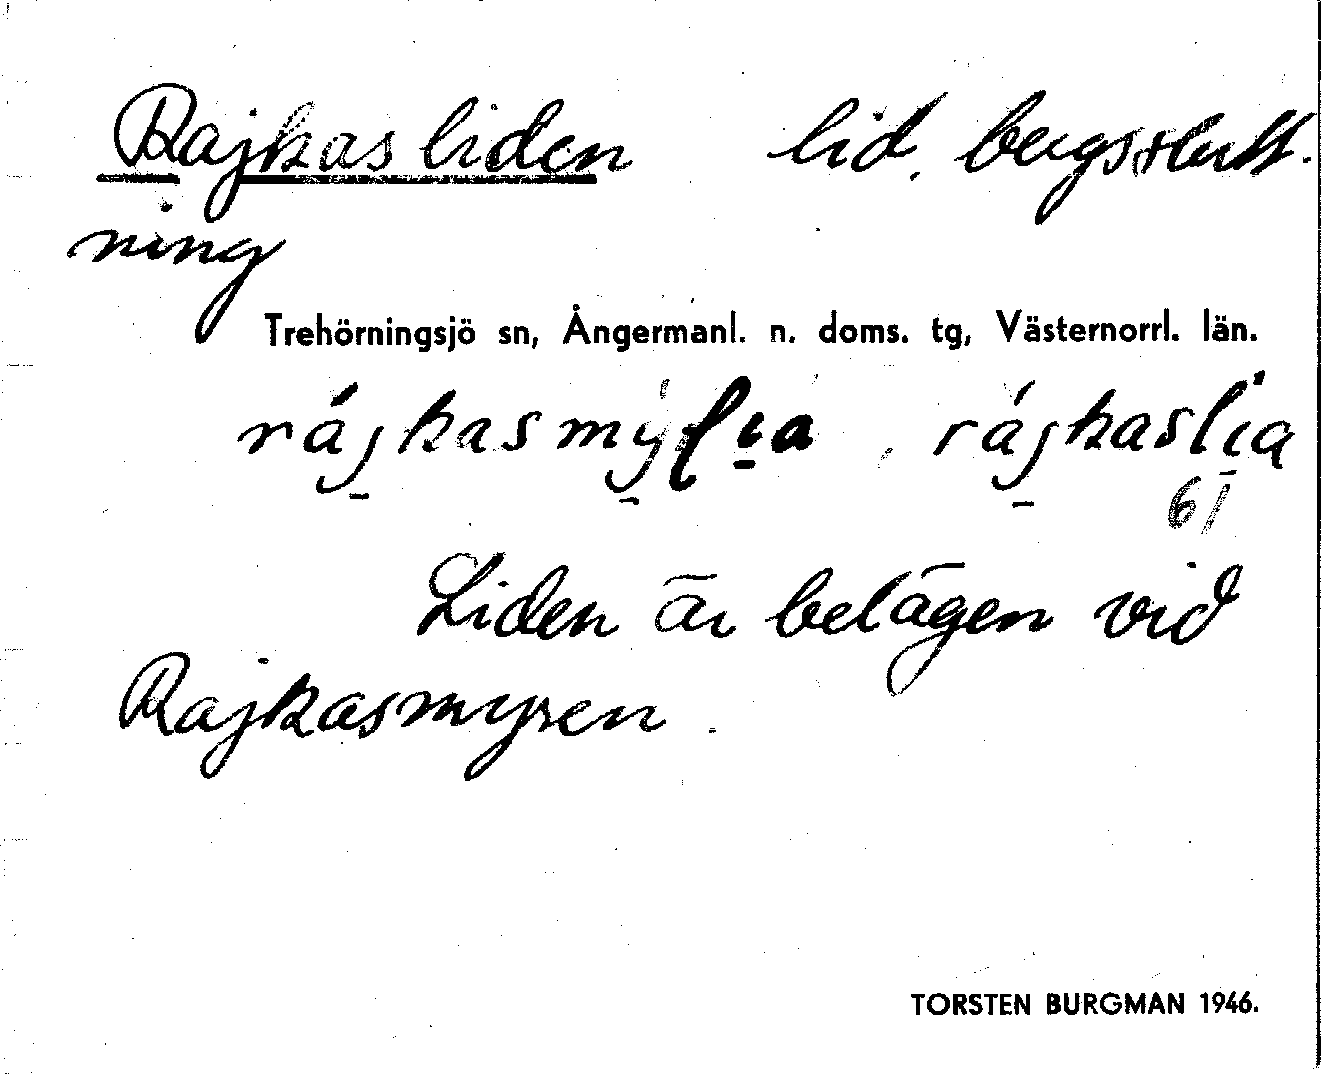 Rajkasliden lid, bergsslutt-
ning
Trehörningsjö sn, Ångermanl. n. doms. tg, Västernorrl. län.
rájkasmýlia, rájkaslia
61
Liden är belägen vid
Rajkasmyren.
TORSTEN BURGMAN 1946.